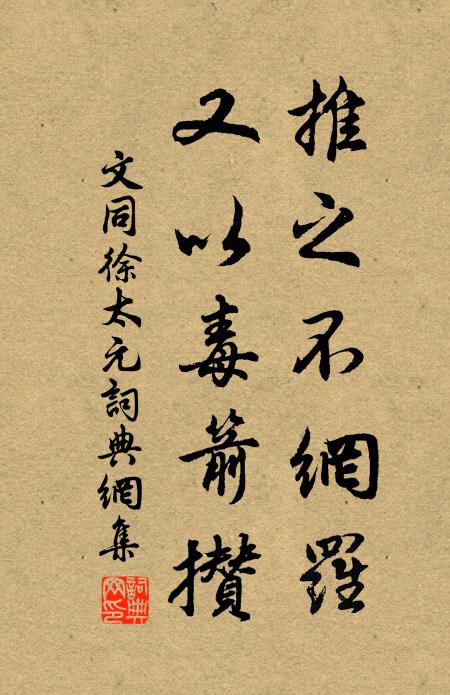 推之不網羅
又以毒箭攢
文同徐太元詞典網集
詞典网印